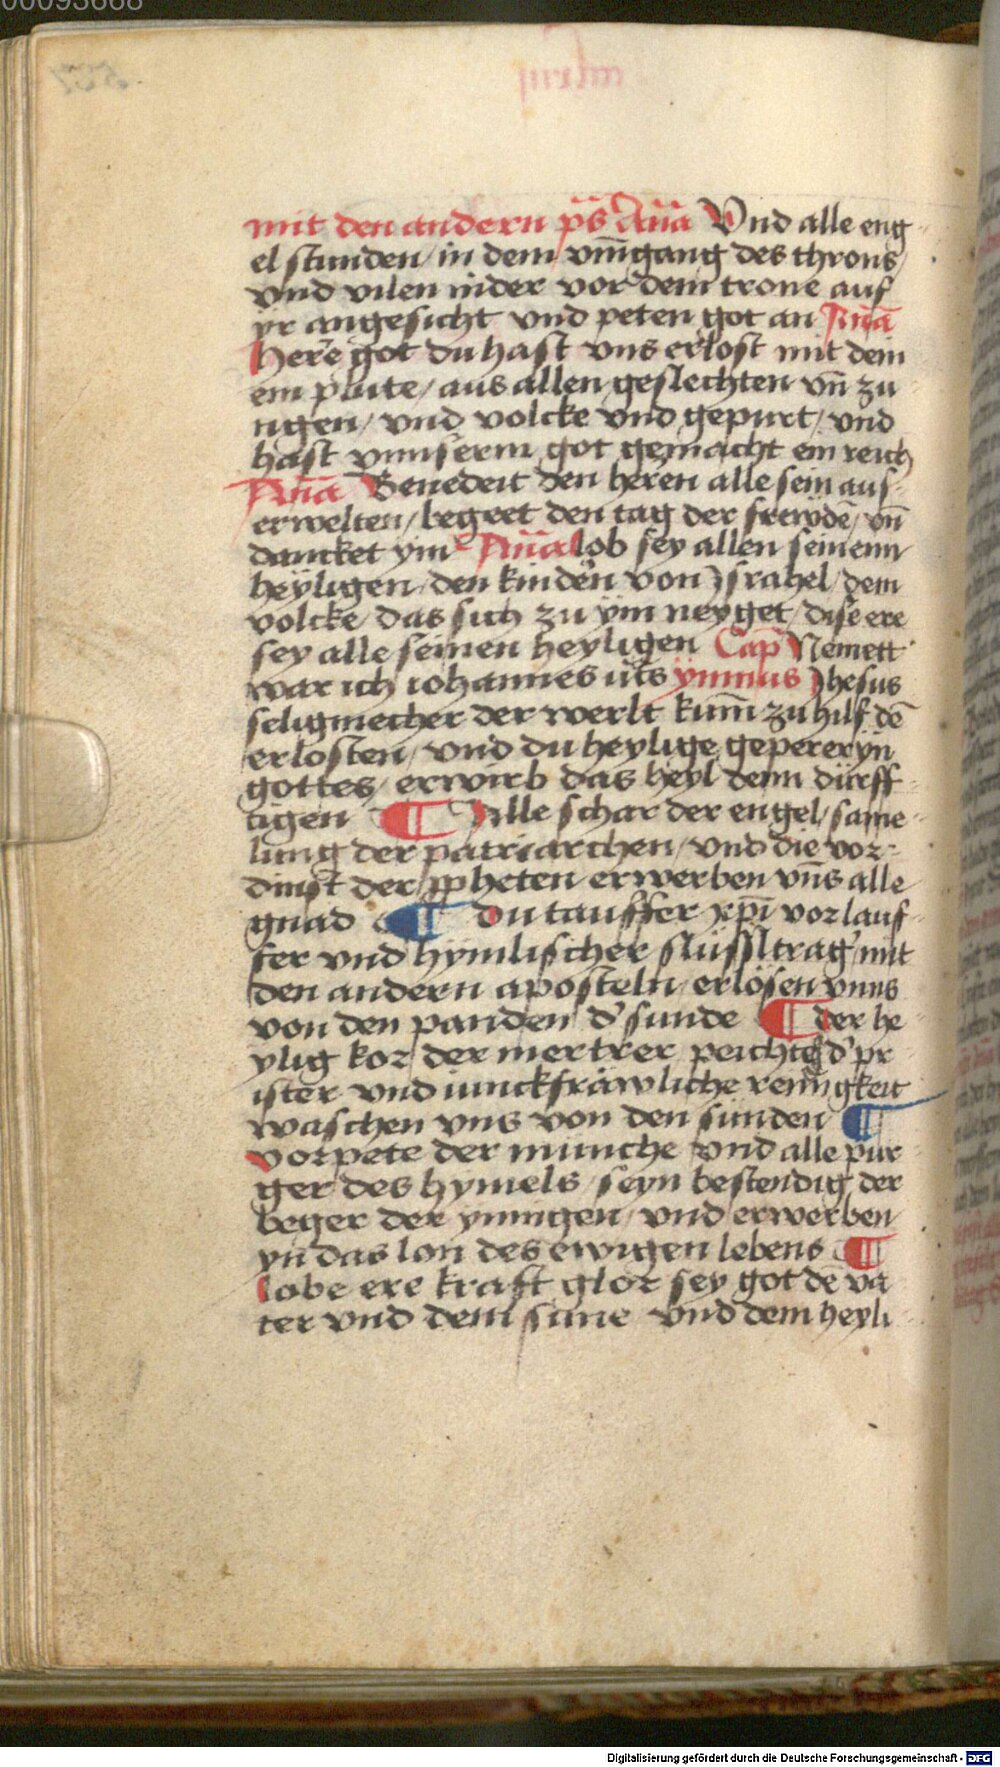 mit den andern ps̄ Ana̅ Vnd alle eng
el stunden / in dem vm̅gang des throns /
vnd vilen nider vor dem trone auf
yr angesicht vnd peten got an Ana̅
Here got du hast vns erlost mit dein
em plute / aus allen geslechten vn̅ zu
ngen / vnd volcke vnd gepurt / vnd
hast vnnserm got gemacht ein reich
Ana̅ Benedeit den heren alle sein aus
erwelten / begeet den tag der frewde̅ / vn̅
dancket ym Ana̅ lob sey allen seinenn
heyligen / den kinde᷑n von Jsrahel / dem
volcke / das sich zu ym neyget / dise ere
sey alle seinen heyligen Cap̅ Nemett
war ich iohannes ut̅s ymnus Jhesus
seligmecher der werlt kum̅ zu hilf de̅
erlosten / vnd du heylige gepereryn
gottes / erwirb das heyl denn dürff
tigen ¶ Alle schar der engel / same
lung der patriarchen / vnd die vor
dinst der ꝓpheten erwerben vn̅s alle
gnad ¶ du tauffer xp̅i vorlauf
fer vnd hymlischer slüssltrag᷑ mit
den andern aposteln / erlösen vnns
von den panden d᷑ sunde ¶ der he
ylig kor der mertrer peichtg᷑ d᷑ pr
ister vnd iunckfräwliche renigkeit
waschen vns von den sunden ¶
vorpete der münche vnd alle pur
ger des hymels / seyn bestendig der
beger der ynnigen / vnd erwerben
yn̅ das lon des ewigen lebens ¶
lobe ere kraft glor sey got de̅ va
ter vnd dem sune vnd dem heyli
Digitalisierung gefördert durch die Deutsche Forschungsgemeinschaft - DFG